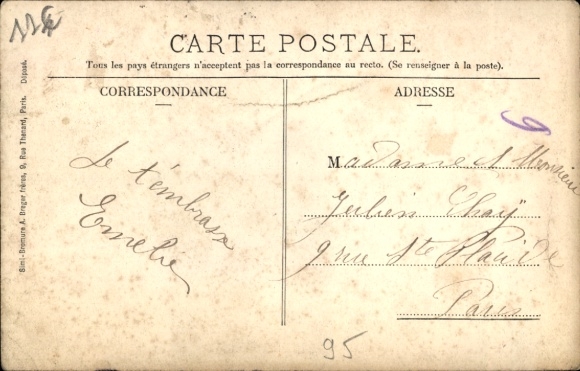 CARTE POSTALE.
Tous les pays étrangers n'acceptent pas la correspondance au recto. (Se renseigner à la poste).
CORRESPONDANCE
Je t'embrasse
ADRESSE
Madame & Monsieur
Julien Chay
9 rue Ste Placide
Paris
95
Simi-Bromure A. Breger frères, 9, Rue Thenard, Paris. Déposé.